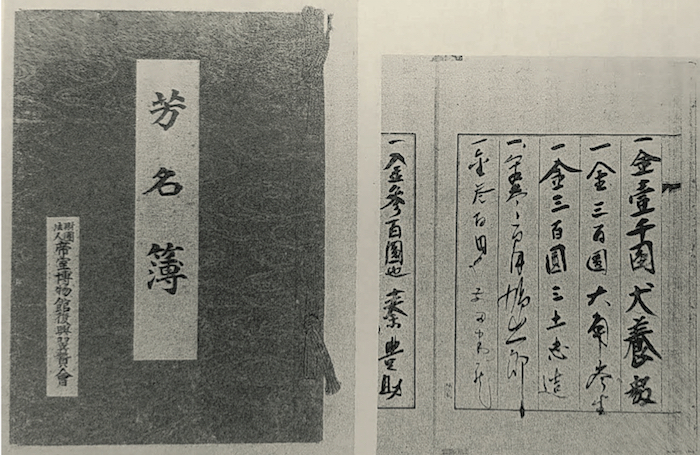 芳名簿
財團法人帝室博物館復興翼賛會
一金壹千圓犬養毅
一金三百圓大角岑生
一金三百圓三土忠造
一金参百圓鳩山一郎
一金参百円
一金參百圓也秦豊助